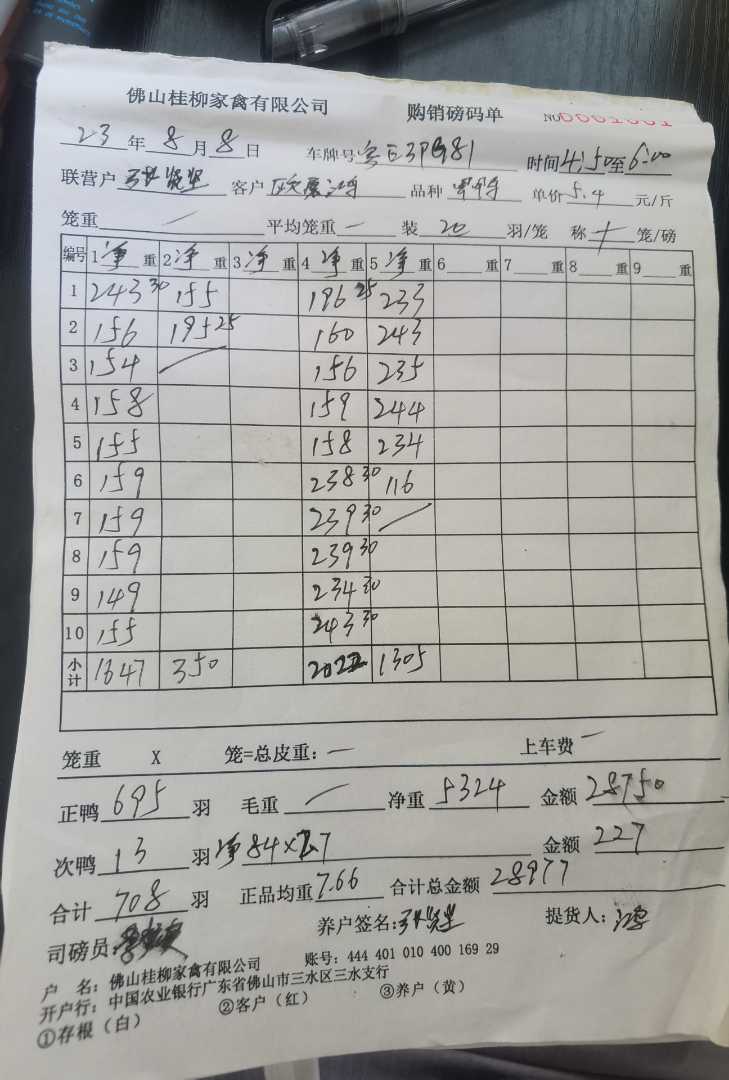 佛山桂柳家禽有限公司 购销磅码单 NO 0001001
23年8月8日 车牌号 时间4:50至6:00
联营户 客户 品种 单价5.4元/斤
笼重 — 平均笼重 — 装20羽/笼 称十笼/磅
编号 1净重 2净重 3净重 4净重 5净重 6重 7重 8重 9重
1 243 30 155 196 25 233
2 156 195 25 160 243
3 154 156 235
4 158 159 244
5 155 158 234
6 159 238 30 116
7 159 239 30
8 159 239 30
9 149 234 30
10 155 243 30
小计 1647 350 2022 1305
笼重 X 笼=总皮重: — 上车费 —
正鸭695羽 毛重 净重5324 金额28750
次鸭13羽 净84×2.7 金额227
合计708羽 正品均重7.66 合计总金额28977
司磅员: 养户签名: 提货人:鸿
户 名:佛山桂柳家禽有限公司 账号:444 401 010 400 169 29
开户行:中国农业银行广东省佛山市三水区三水支行
①存根(白) ②客户(红) ③养户(黄)